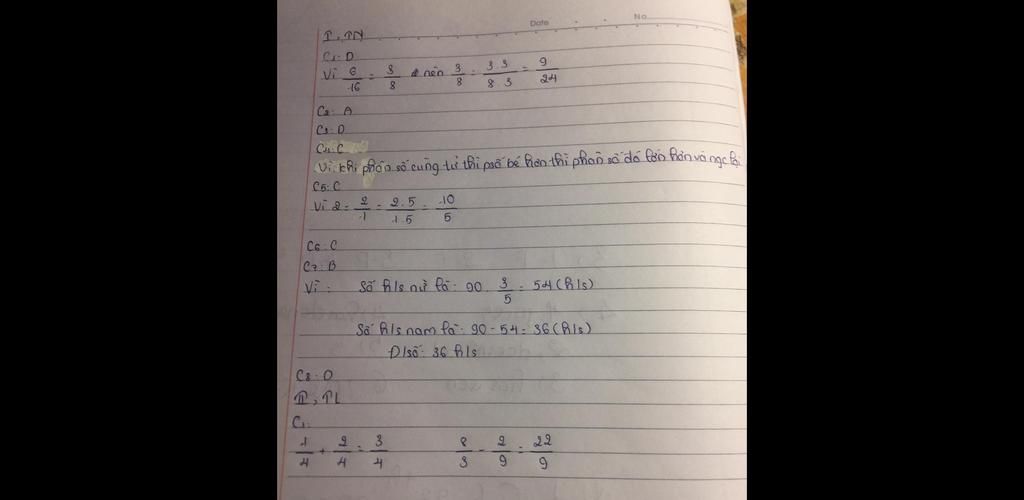 Date No.
I, TN
C1: D
Vì 6/16 = 3/8 nên 3/8 = 3.3/8.3 = 9/24
C2: A
C3: D
C4: C
Vì: khi phân số cùng tử thì psố bé hơn thì phân số đó lớn hơn và ngc lại
C5: C
Vì 2 = 2/1 = 2.5/1.5 = 10/5
C6: C
C7: B
Vì: Số h/s nữ là: 90 . 3/5 = 54 (h/s)
Số h/s nam là: 90 - 54 = 36 (h/s)
Đ/số: 36 h/s
C8: D
II, TL
C1:
1/4 + 2/4 = 3/4 8/3 - 2/9 = 22/9